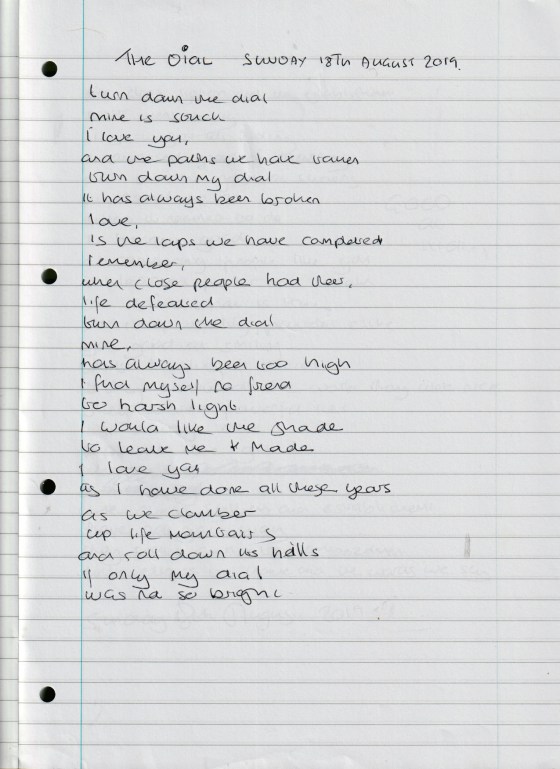 THE DIAL SUNDAY 18TH AUGUST 2019.
turn down the dial
mine is stuck
I love you,
and the paths we have taken
turn down my dial
it has always been broken
love,
is the laps we have completed
remember,
when close people had their,
life defeated
turn down the dial
mine,
has always been too high
I find myself no friend
to harsh light
I would like the shade
to leave me + Made
I love you
as I have done all these years
as we clamber
up life mountains
and roll down its hills
if only my dial
was not so bright